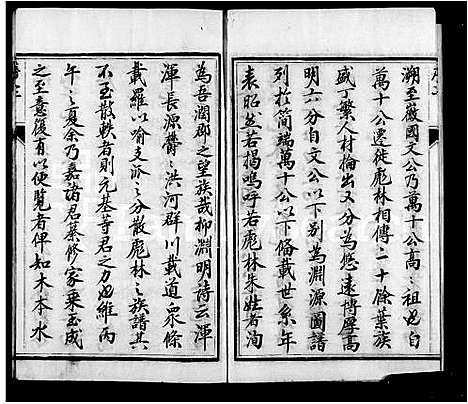 溯至徽國文公乃萬十公高〻祖也自
萬十公遷徙彪林相傳二十餘葉族
盛丁繁人材倫出又分為悠遠博厚高
明六分自文公以下別為淵源圖譜
列於簡端萬十公以下備載世系年
表昭然若揭嗚呼若彪林朱姓者洵
為吾潤郡之望族哉柳淵明詩云渾
渾長源欝〻洪河群川載道眾條
載羅以喻支派之分散彪林之族譜其
不至散軼者則元基等君之力也維丙
午之夏余乃嘉諸君纂修家乘玉成
之至意復有以便覽者俾知木本水